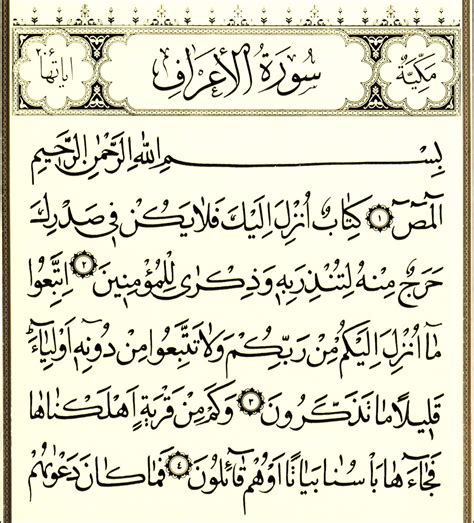 مكية
سورة الأعراف
اياتها ٢٠٦
بِسْمِ اللهِ الرَّحْمٰنِ الرَّحِيمِ
الٓمٓصٓ ١ كِتَابٌ اُنْزِلَ اِلَيْكَ فَلَا يَكُنْ فٖى صَدْرِكَ
حَرَجٌ مِنْهُ لِتُنْذِرَ بِهٖ وَذِكْرٰى لِلْمُؤْمِنٖينَ ٢ اِتَّبِعُوا
مَٓا اُنْزِلَ اِلَيْكُمْ مِنْ رَبِّكُمْ وَلَا تَتَّبِعُوا مِنْ دُونِهٖٓ اَوْلِيَٓاءَؕ
قَلٖيلًا مَا تَذَكَّرُونَ ٣ وَكَمْ مِنْ قَرْيَةٍ اَهْلَكْنَاهَا
فَجَٓاءَهَا بَاْسُنَا بَيَاتًا اَوْ هُمْ قَٓائِلُونَ ٤ فَمَا كَانَ دَعْوٰيهُمْ